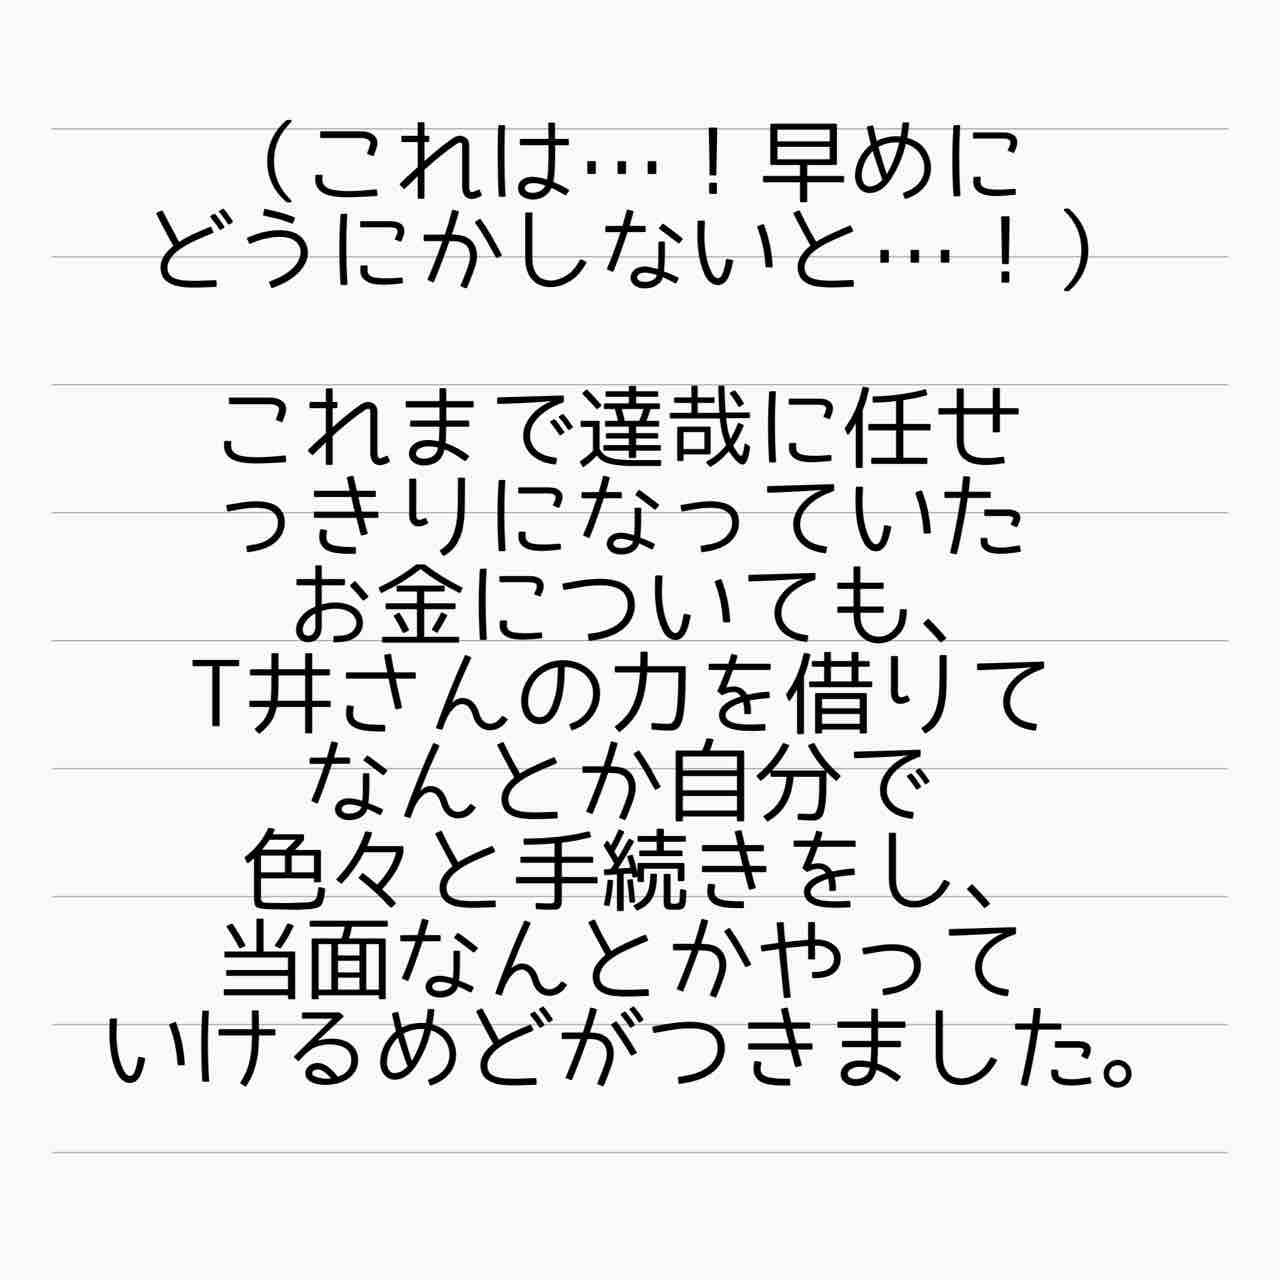 （これは…！早めに
どうにかしないと…！）
これまで達哉に任せ
っきりになっていた
お金についても、
T井さんの力を借りて
なんとか自分で
色々と手続きをし、
当面なんとかやって
いけるめどがつきました。